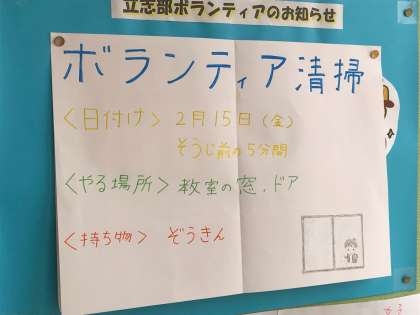 立志部ボランティアのお知らせ
ボランティア清掃
<日付け> 2月15日(金)
そうじ前の5分間
<やる場所> 教室の窓、ドア
<持ち物> ぞうきん